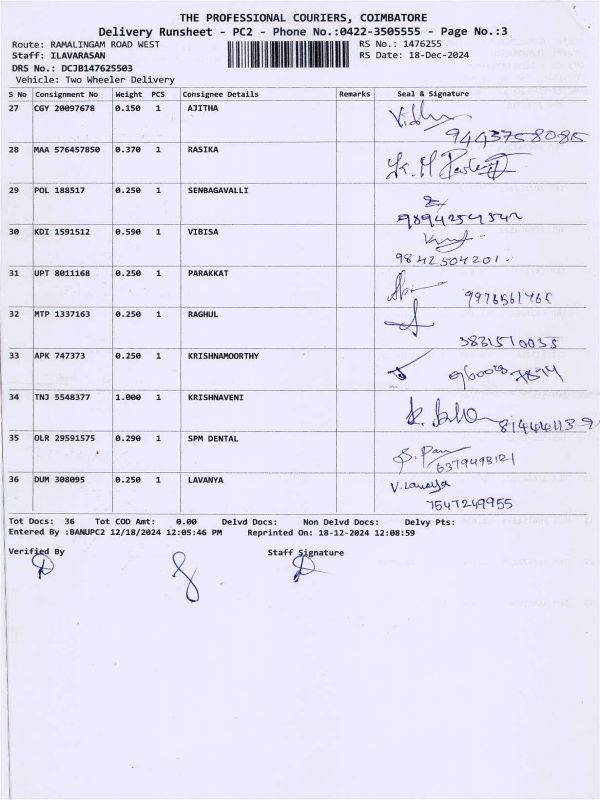 THE PROFESSIONAL COURIERS, COIMBATORE
Delivery Runsheet - PC2 - Phone No.:0422-3505555 - Page No.:3
Route: RAMALINGAM ROAD WEST RS No.: 1476255
Staff: ILAVARASAN RS Date: 18-Dec-2024
DRS No.: DCJB147625503
Vehicle: Two Wheeler Delivery
S No Consignment No Weight PCS Consignee Details Remarks Seal & Signature
27 CGY 20097678 0.150 1 AJITHA
9443758085
28 MAA 576457850 0.370 1 RASIKA
29 POL 188517 0.250 1 SENBAGAVALLI
30 KDI 1591512 0.590 1 VIBISA
9842504201.
31 UPT 8011168 0.250 1 PARAKKAT
32 MTP 1337163 0.250 1 RAGHUL
33 APK 747373 0.250 1 KRISHNAMOORTHY
34 TNJ 5548377 1.000 1 KRISHNAVENI
35 OLR 29591575 0.290 1 SPM DENTAL
36 DUM 308095 0.250 1 LAVANYA V. Lavanya
7547249955
Tot Docs: 36 Tot COD Amt: 0.00 Delvd Docs: Non Delvd Docs: Delvy Pts:
Entered By :BANUPC2 12/18/2024 12:05:46 PM Reprinted On: 18-12-2024 12:08:59
Verified By Staff Signature